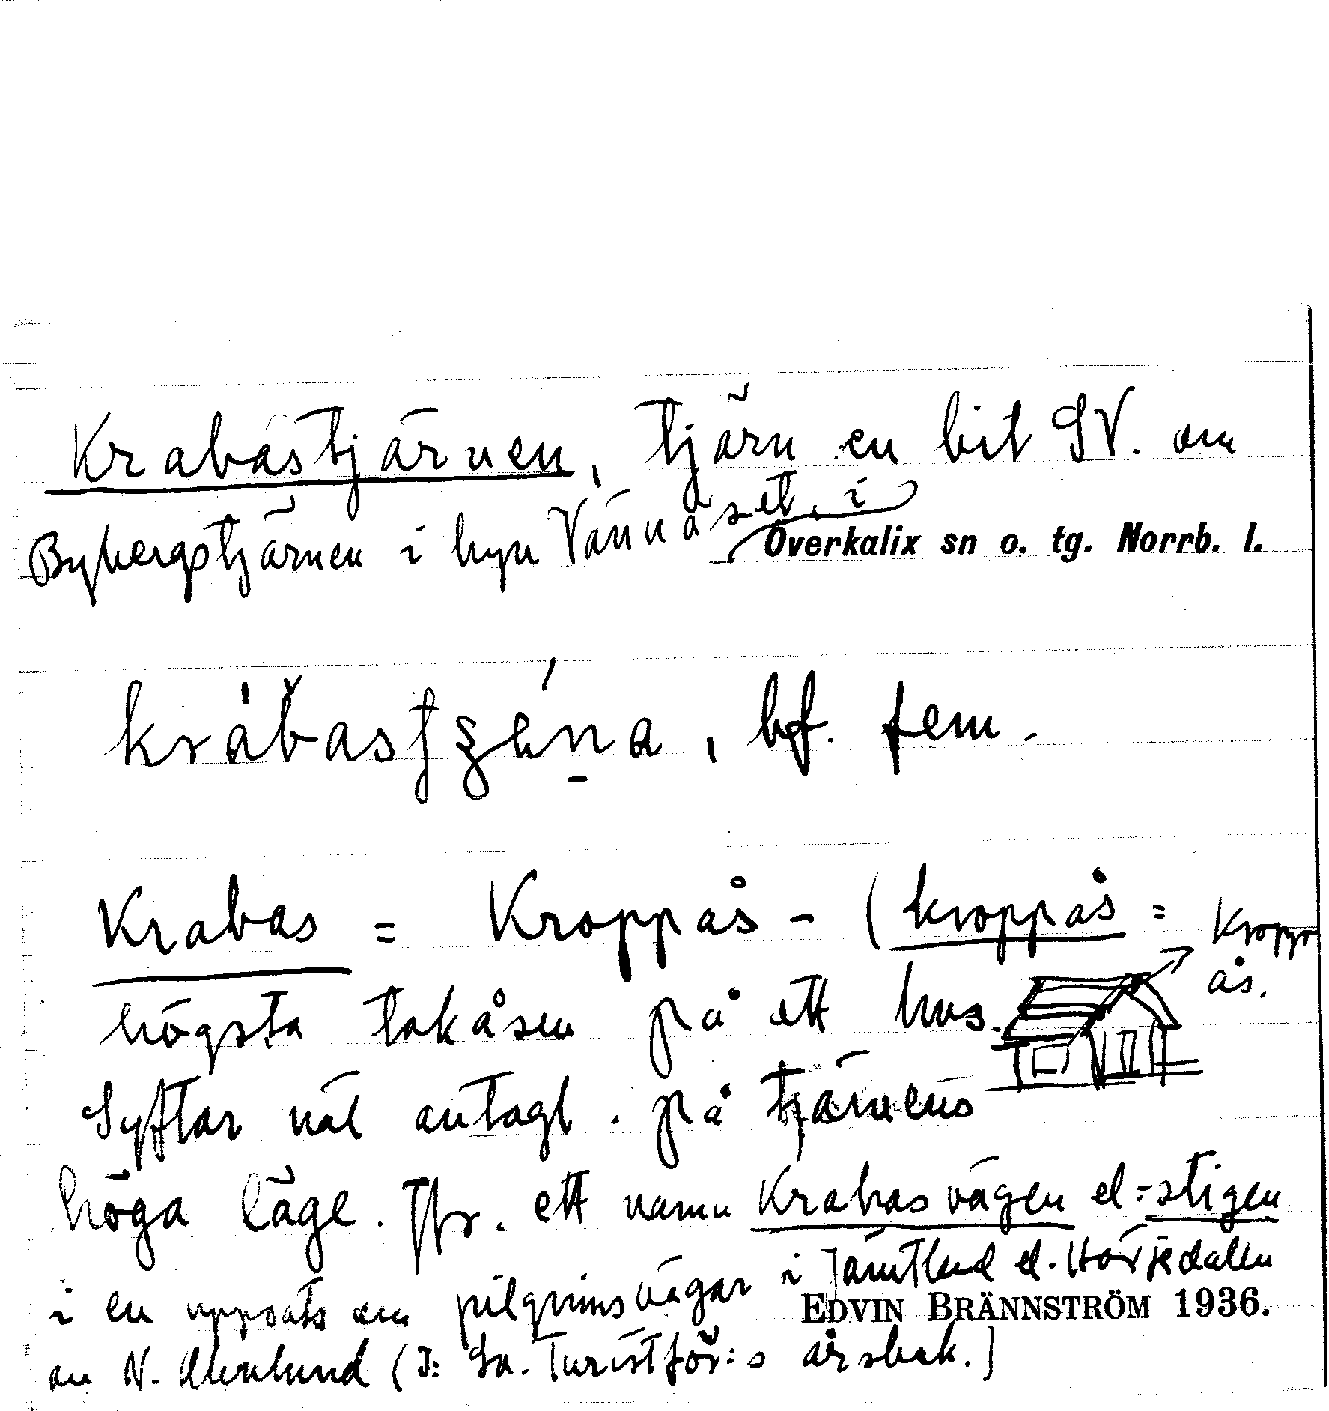 Krabastjärnen, tjärn en bit SV. om
Bybergstjärnen i byn Vännäset, i
Överkalix sn o. tg. Norrb. l.
bf. fem.
Krabas = Kroppås - (kroppås =
Kropp
ås.
högsta takåsen på ett hus.
Syftar väl antagl. på tjärnens
höga läge. Jfr. ett namn Krabasvägen el. -stigen
i en uppsats om pilgrimsvägar i Jämtland el. Härjedalen
EDVIN BRÄNNSTRÖM 1936.
av N. Ahnlund (I: Sv. Turistför:s årsbok.)